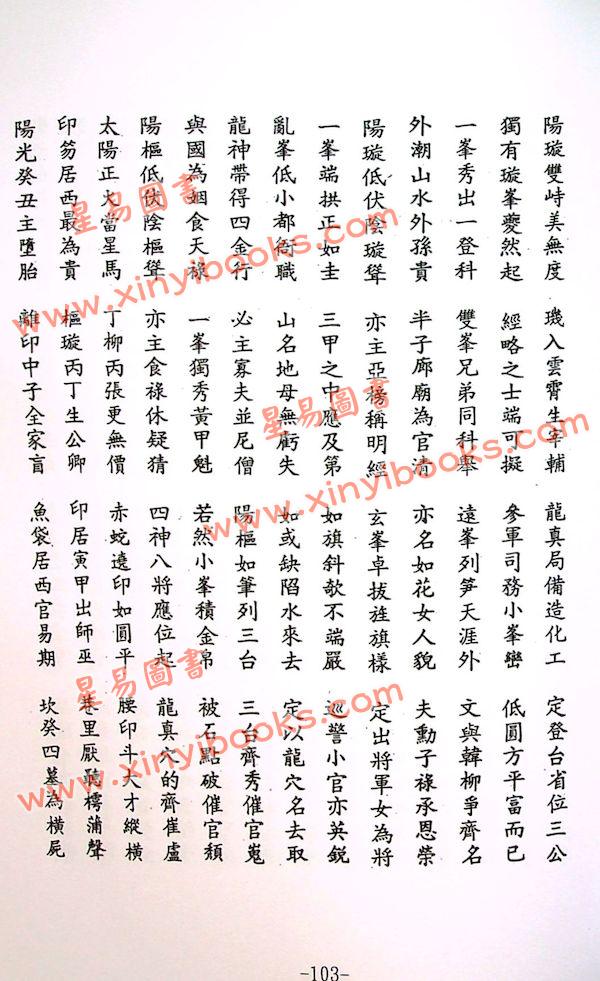 陽璇雙峙美無度 璣入雲霄生宰輔 龍真局備造化工 定登台省位三公
獨有璇峯夔然起 經略之士端可擬 參軍司務小峯巒 低圓方平富而已
一峯秀出一登科 雙峯兄弟同科舉 遠峯列笋天涯外 文與韓柳爭齊名
外潮山水外孫貴 半子廊廟為官清 亦名如花女人貌 夫勳子祿承恩榮
陽璇低伏陰璇聳 亦主亞榜稱明經 玄峯卓拔旌旗樣 定出將軍女為將
一峯端拱正如圭 三甲之中應及第 如旗斜欹不端嚴 巡警小官亦英銳
亂峯低小都衙職 山名地母無虧失 如或缺陷水來去 定以龍穴名去取
龍神帶得四金行 必主寡夫並尼僧 陽樞如筆列三台 三台齊秀催官嵬
與國為姻食天祿 一峯獨秀黃甲魁 若然小峯積金帛 被石點破催官頹
陽樞低伏陰樞聳 亦主食祿休疑猜 四神八將應位起 龍真穴的齊崔盧
太陽正大當星馬 丁柳丙張更無價 赤蛇遶印如圓平 腰印斗大才縱橫
印笏居西最為貴 樞璇丙丁生公卿 印居寅甲出師巫 巷里厭聽樗蒲聲
陽光癸丑主墮胎 離印中子全家盲 魚袋居西官易期 坎癸四墓為橫屍
-103-
星易圖書
www.xinyibooks.com
星易圖書
www.xinyibooks.com
星易圖書
www.xinyibooks.com